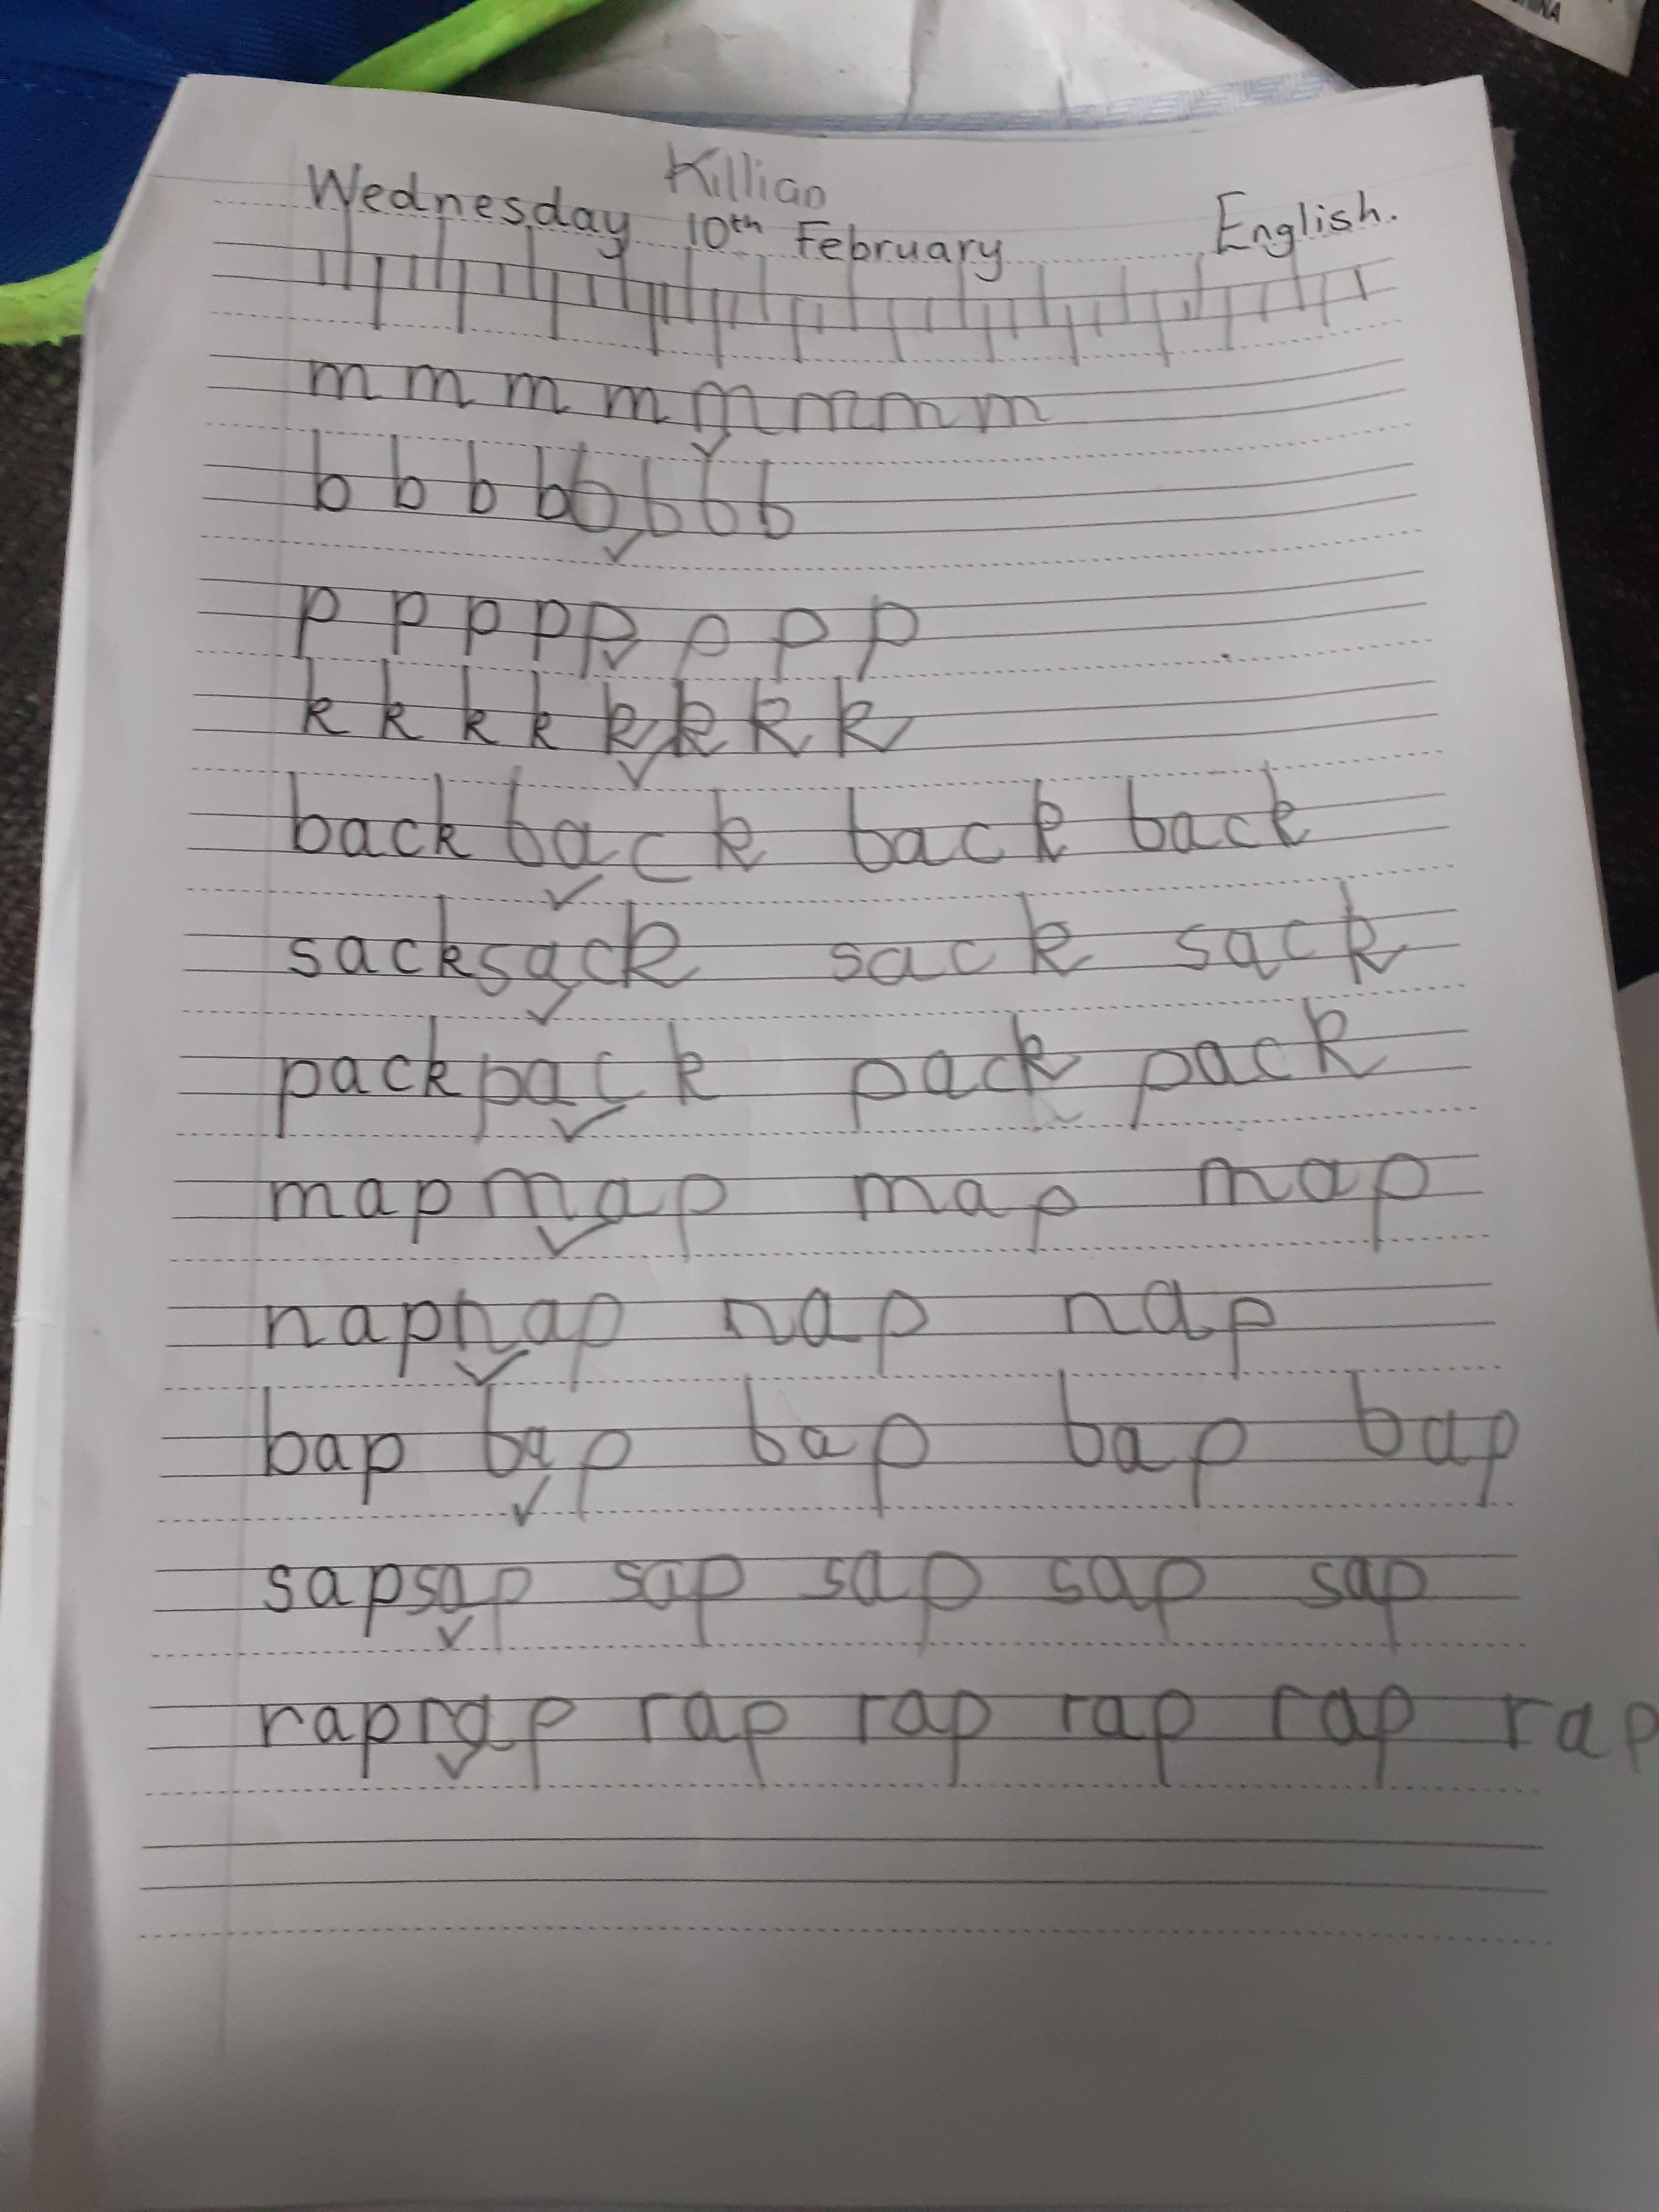 Killian
Wednesday 10th February English.
m m m m m m m m
b b b b b b b b
p p p p p p p p
k k k k k k k k
back back back back
sack sack sack sack
pack pack pack pack
map map map map
nap nap nap nap
bap bap bap bap bap
sap sap sap sap sap sap
rap rap rap rap rap rap rap